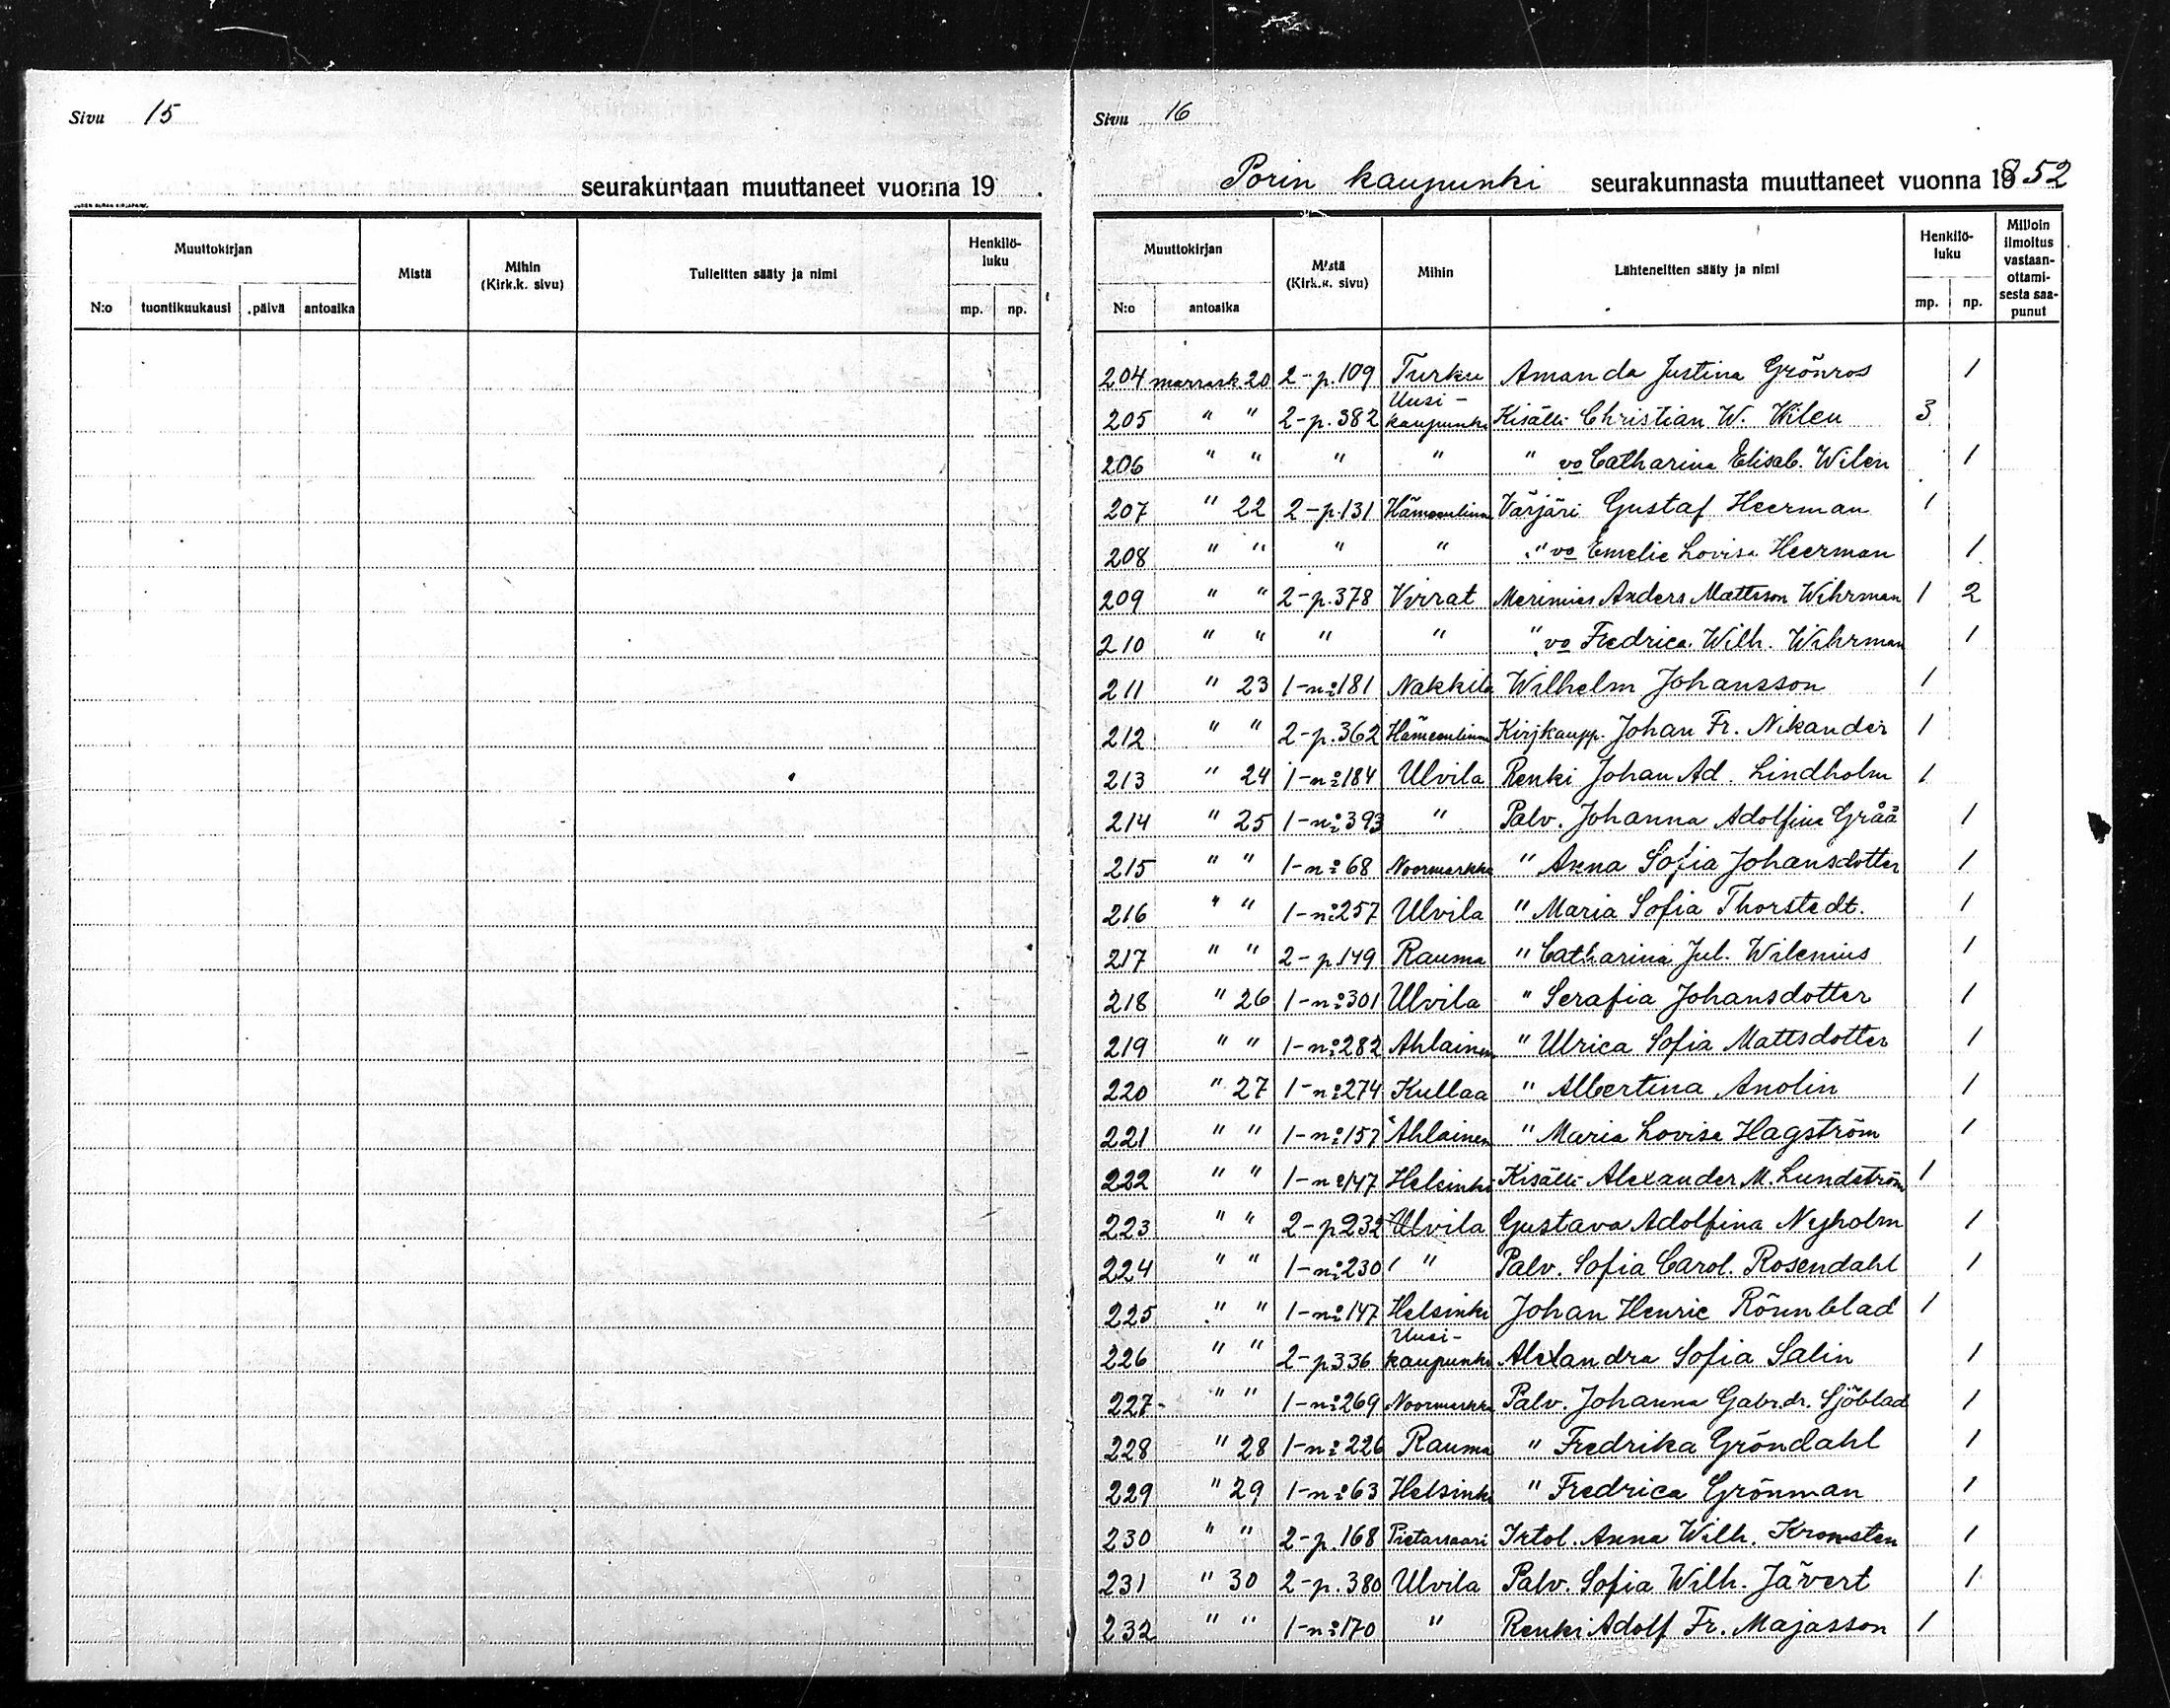 Sivu 15
seurakuntaan muuttaneet vuonna 19 .
Muuttokirjan
Mistä
Mihin
(Kirk.k. sivu)
Tulleitten sääty ja nimi
Henkilö-
luku
N:o tuontikuukausi päivä antoaika mp. np.
Sivu 16
Porin kaupunki seurakunnasta muuttaneet vuonna 1852
Muuttokirjan
Mistä
(Kirk.k. sivu)
Mihin
Lähteneitten sääty ja nimi
Henkilö-
luku
Milloin
ilmoitus
vastaan-
ottami-
sesta saa-
punut
N:o antoaika mp. np.
204 marrask 20 2-p.109 Turku Amanda Justina Grönros 1
205 " " 2-p.382 Uusi-kaupunki Kisälli Christian W. Wilen 3
206 " " " " " vo Catharina Elisab. Wilen 1
207 " 22 2-p.131 Hämeenlinna Värjäri Gustaf Heerman 1
208 " " " " " vo Emelie Lovisa Heerman 1
209 " " 2-p.378 Virrat Merimies Anders Mattsson Wihrman 1 2
210 " " " " " vo Fredrica Wilh. Wihrman 1
211 " 23 1-n:o 181 Nakkila Wilhelm Johansson 1
212 " " 2-p.362 Hämeenlinna Kirjkaupp. Johan Fr. Nikander 1
213 " 24 1-n:o 184 Ulvila Renki Johan Ad. Lindholm 1
214 " 25 1-n:o 393 " Palv. Johanna Adolfina Gråå 1
215 " " 1-n:o 68 Noormarkku " Anna Sofia Johansdotter 1
216 " " 1-n:o 257 Ulvila " Maria Sofia Thorstedt. 1
217 " " 2-p.149 Rauma " Catharina Jul. Wilenius 1
218 " 26 1-n:o 301 Ulvila " Serafia Johansdotter 1
219 " " 1-n:o 282 Ahlainen " Ulrica Sofia Mattsdotter 1
220 " 27 1-n:o 274 Kullaa " Albertina Anolin 1
221 " " 1-n:o 157 Ahlainen " Maria Lovisa Hagström 1
222 " " 1-n:o 147 Helsinki Kisälli Alexander M. Lundström 1
223 " " 2-p 232 Ulvila Gustava Adolfina Nyholm 1
224 " " 1-n:o 230 " Palv. Sofia Carol. Rosendahl 1
225 " " 1-n:o 147 Helsinki Johan Henric Rönnblad 1
226 " " 2-p 336 Uusi-kaupunki Alexandra Sofia Salin 1
227- " " 1-n:o 269 Noormarkku Palv. Johanna Gabr.dr. Sjöblad 1
228 " 28 1-n:o 226 Rauma " Fredrika Gröndahl 1
229 " 29 1-n:o 63 Helsinki " Fredrica Grönman 1
230 " " 2-p.168 Pietarsaari Irtol. Anna Wilh. Kromsten 1
231 " 30 2-p.380 Ulvila Palv. Sofia Wilh. Jävert 1
232 " " 1-n:o 170 " Renki Adolf Fr. Majasson 1